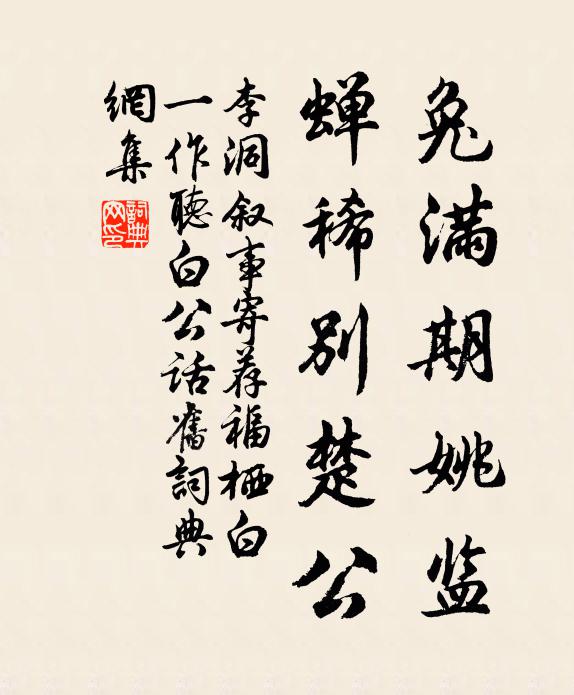 兔满期姚监
蝉稀别楚公
李洞叙事寄荐福栖白
一作聽白公话舊詞典
網集
詞典
网印